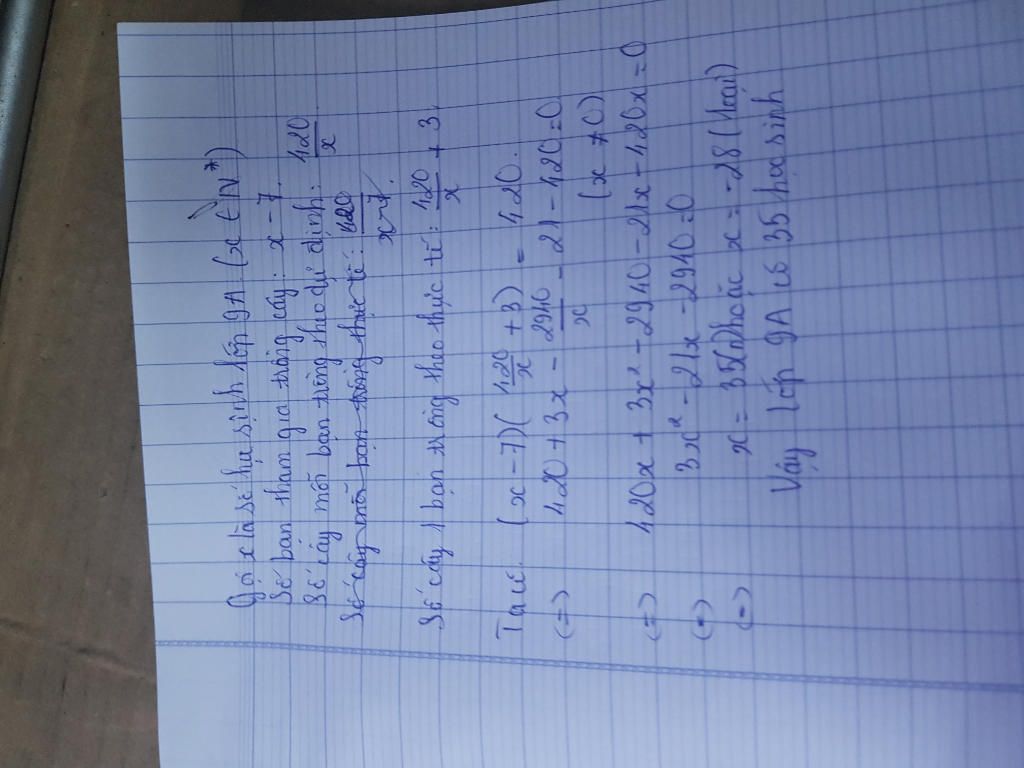 Gọi x là số học sinh lớp 9A (x ∈ N*)
Số bạn tham gia trồng cây: x - 7
Số cây mỗi bạn trồng theo dự định: 420/x
Số cây mỗi bạn trồng thực tế: 420/x-7.
Số cây 1 bạn trồng theo thực tế: 420/x + 3
Ta có. (x - 7)(420/x + 3) = 420.
(=) 420 + 3x - 2940/x - 21 - 420 = 0
(x ≠ 0)
(=) 420x + 3x² - 2940 - 21x - 420x = 0
(=) 3x² - 21x - 2940 = 0
(=) x = 35(n) hoặc x = -28 (loại)
Vậy lớp 9A có 35 học sinh